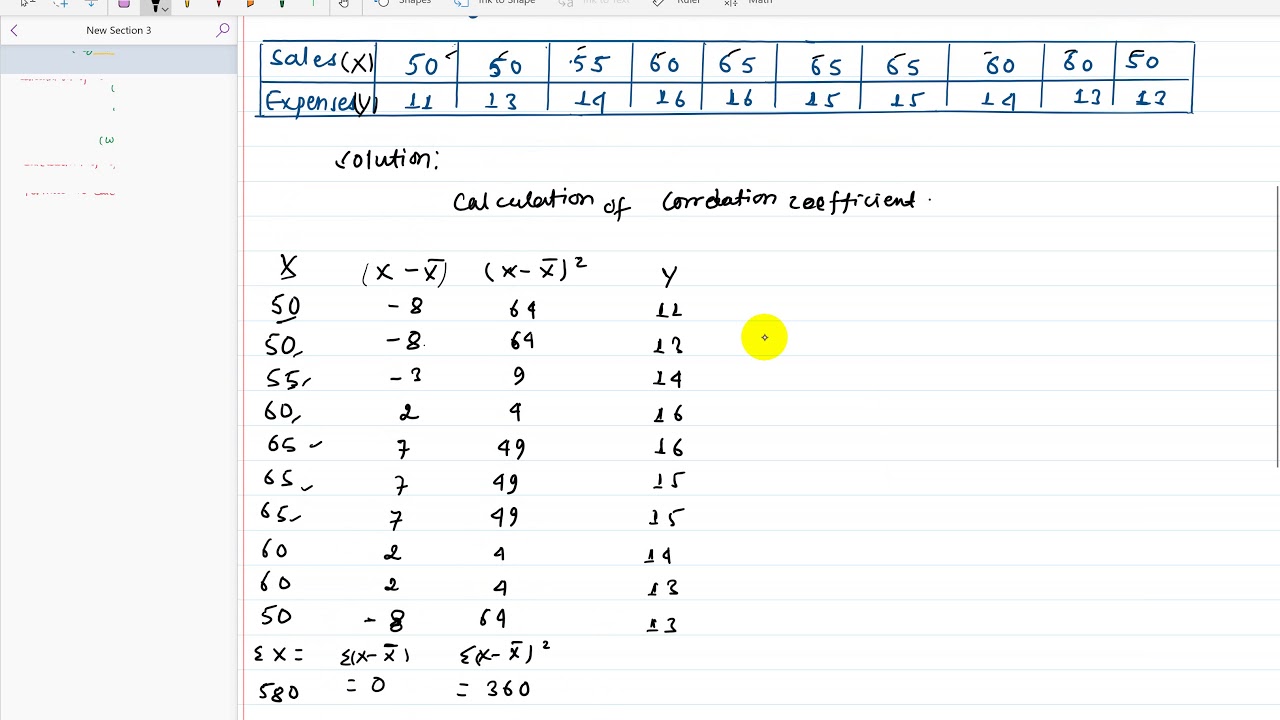 Shapes Ink to Shape Ink to Text Ruler Math
New Section 3
Sales(X) 50 50 55 60 65 65 65 60 60 50
Expenses(Y) 11 13 14 16 16 15 15 14 13 13
Solution:
Calculation of Correlation coefficient.
X (X - X̄) (x - X̄)² Y
50 -8 64 11
50, -8. 64 13
55, -3 9 14
60, 2 4 16
65 ✓ 7 49 16
65 ✓ 7 49 15
65 ✓ 7 49 15
60 2 4 14
60 2 4 13
50 -8 64 13
Σ X = Σ(X - X̄) Σ(x - X̄)²
580 = 0 = 360
(W